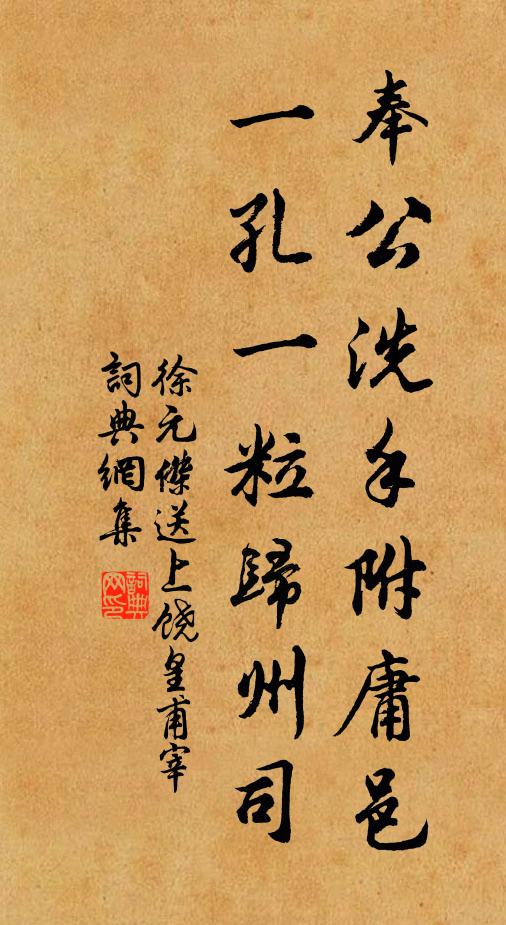 奉公洗手附庸邑
一孔一粒歸州司
徐元傑送上饒皇甫宰
詞典網集
詞典
网印